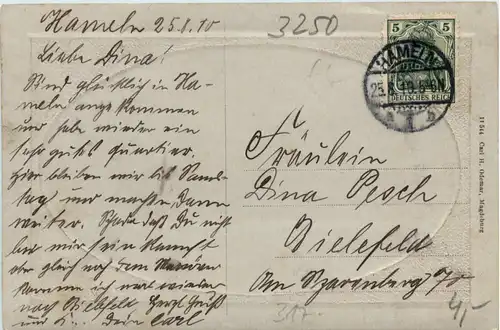 Hameln 25.1.10
3250
Liebe Dina!
Sind glücklich in Ha-
meln angekommen
und habe wieder ein
sehr gutes Quartier.
Hier bleiben wir bis Sams-
tag und machen dann
weiter. Schade daß Du nicht
bei mir sein kannst
aber gleich nach dem Manöver
komme ich mal wieder
nach Bielefeld Herzl. Gruß
und Dein Carl
5 5
HAMELN
25. 10.5-6N
1 b
DEUTSCHES REICH
Fräulein
Dina Pesch
Bielefeld
Am Sparenberg 70
11544 Carl H. Odemar, Magdeburg
317.
4,-